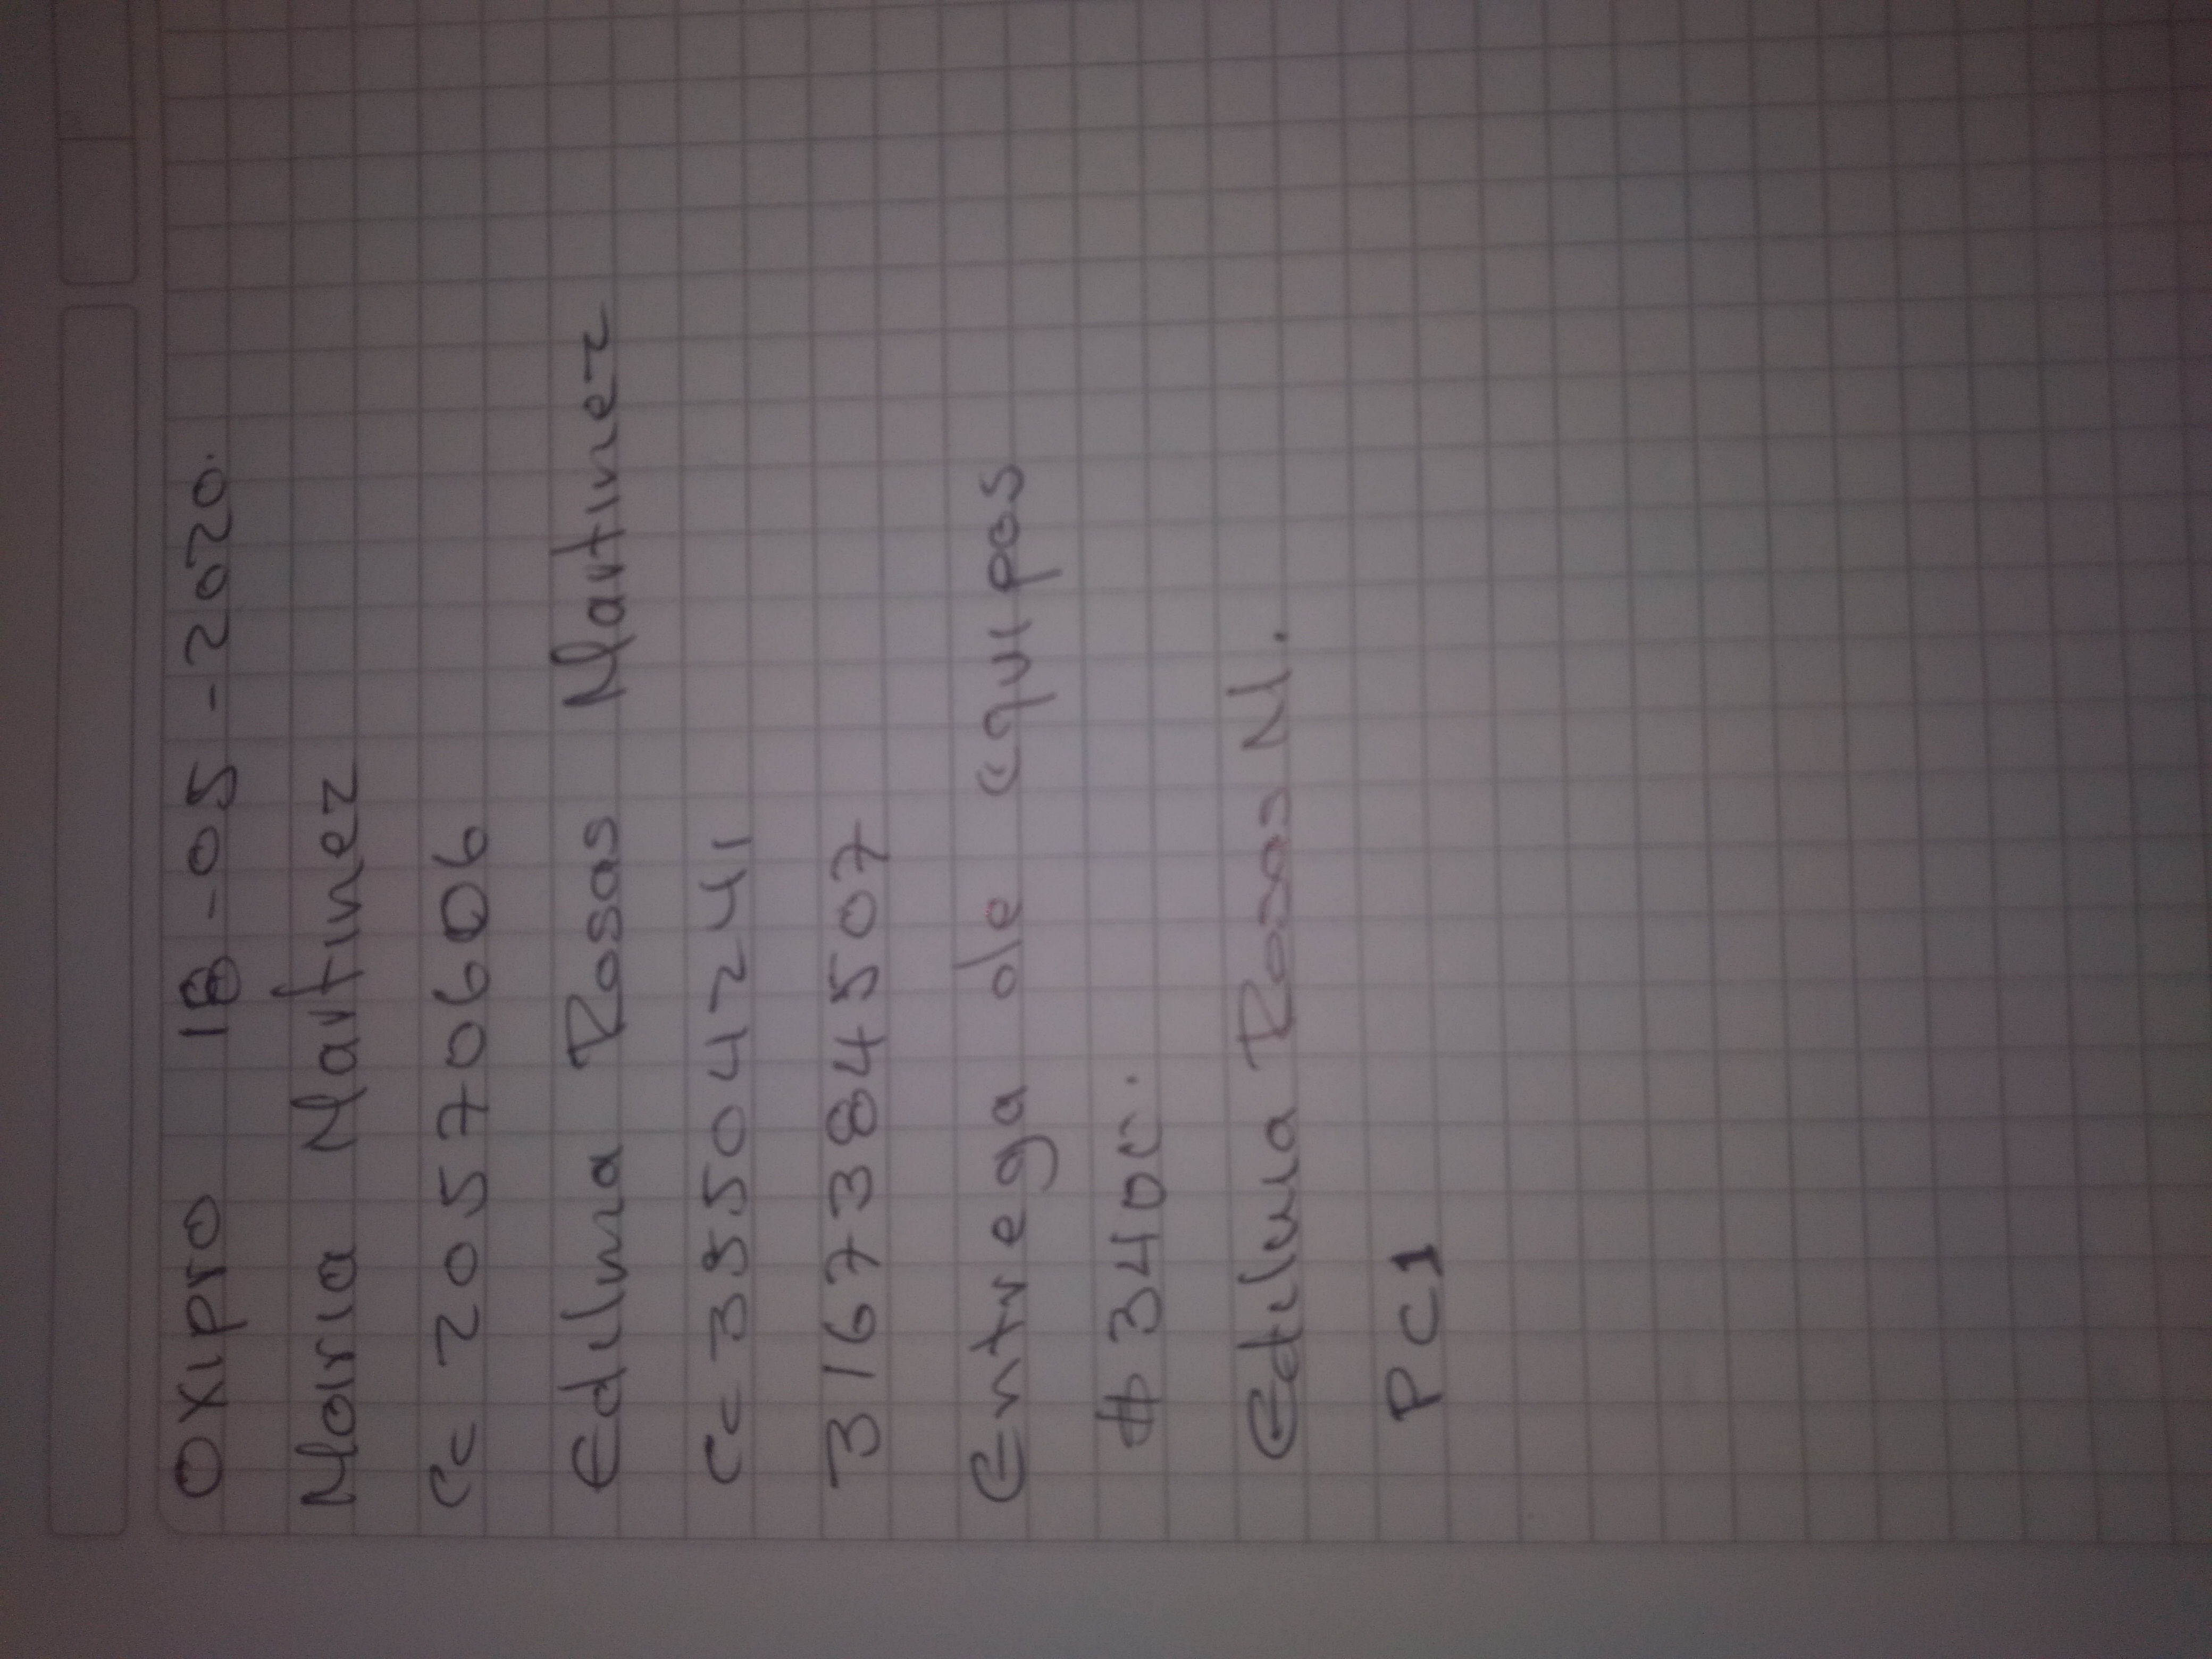 OXIPRO 18-05-2020.
Maria Martinez
CC 20570606
Edilma Rosas Martinez
CC 35504241
3167384507
Entrega de equipos
# 3400.
Edilma Rosas M.
PC1